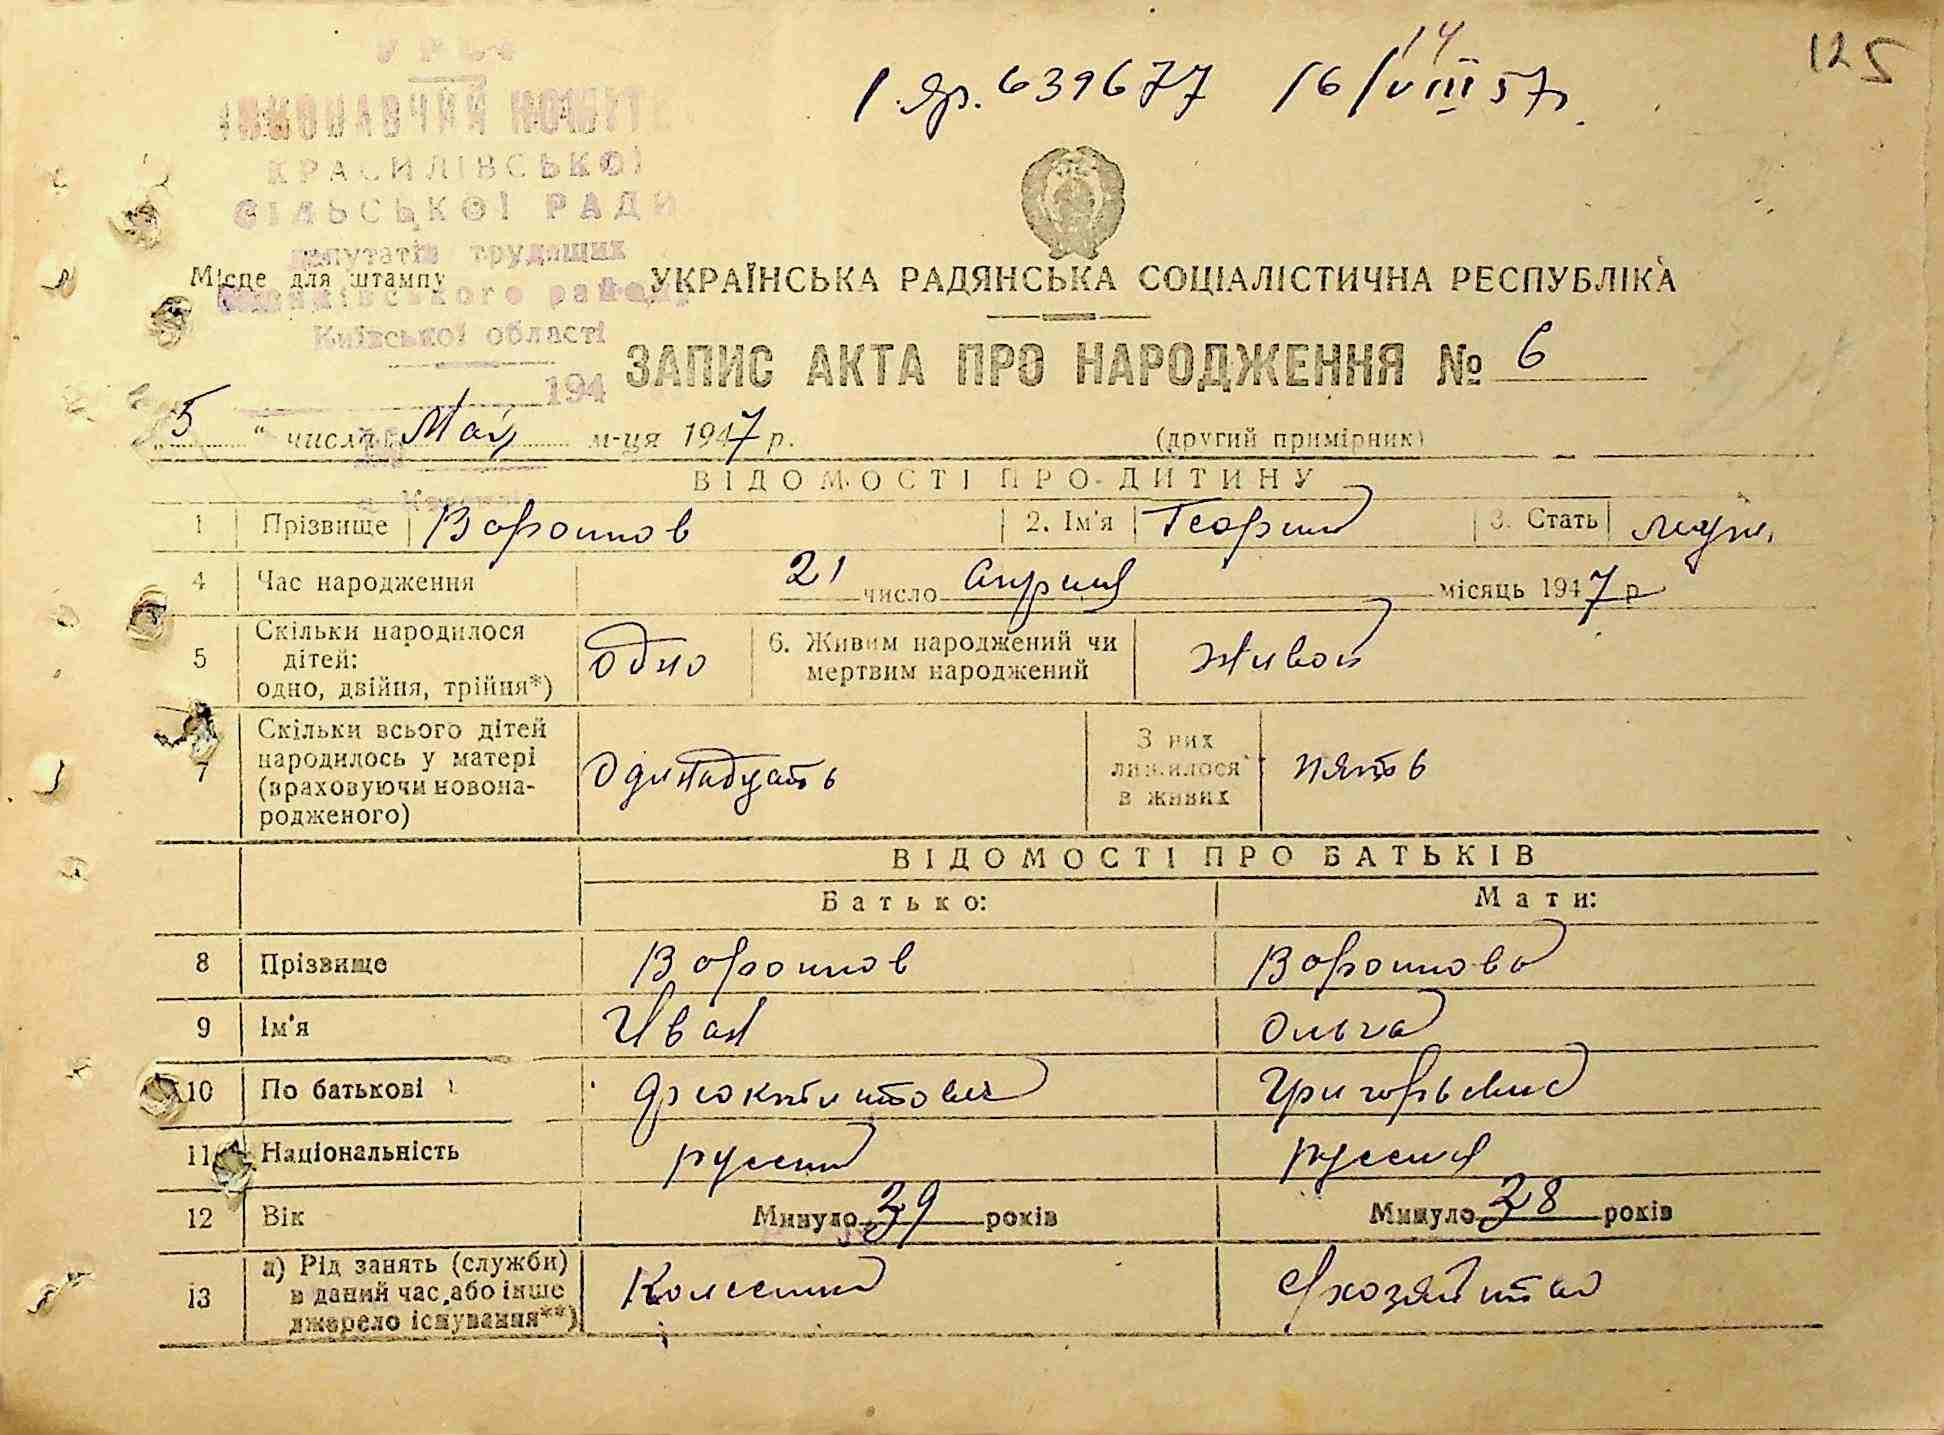 125
14
639677 16/VIII 57
УРСР
ВИКОНАВЧИЙ КОМІТЕТ
КРАСИЛІВСЬКОЇ
СІЛЬСЬКОЇ РАДИ
депутатів трудящих
району
Київської області
194
Місце для штампу
УКРАЇНСЬКА РАДЯНСЬКА СОЦІАЛІСТИЧНА РЕСПУБЛІКА
ЗАПИС АКТА ПРО НАРОДЖЕННЯ № 6
„ 5 “ числа Май м-ця 1947 р.
(другий примірник)
ВІДОМОСТІ ПРО ДИТИНУ
1 Прізвище Воронков 2. Ім'я Георгий 3. Стать муж.
4 Час народження 21 число Апреля місяць 1947 р
5 Скільки народилося дітей: одно, двійня, трійня*) одно 6. Живим народжений чи мертвим народжений живой
7 Скільки всього дітей народилось у матері (враховуючи новонародженого) Одинадцать З них лишилося в живих пять
ВІДОМОСТІ ПРО БАТЬКІВ
Батько: Мати:
8 Прізвище Воронков Воронкова
9 Ім'я Иван Ольга
10 По батькові Григорьевна
11 Національність русский русская
12 Вік Минуло 39 років Минуло 38 років
13 а) Рід занять (служби) в даний час, або інше джерело існування**)